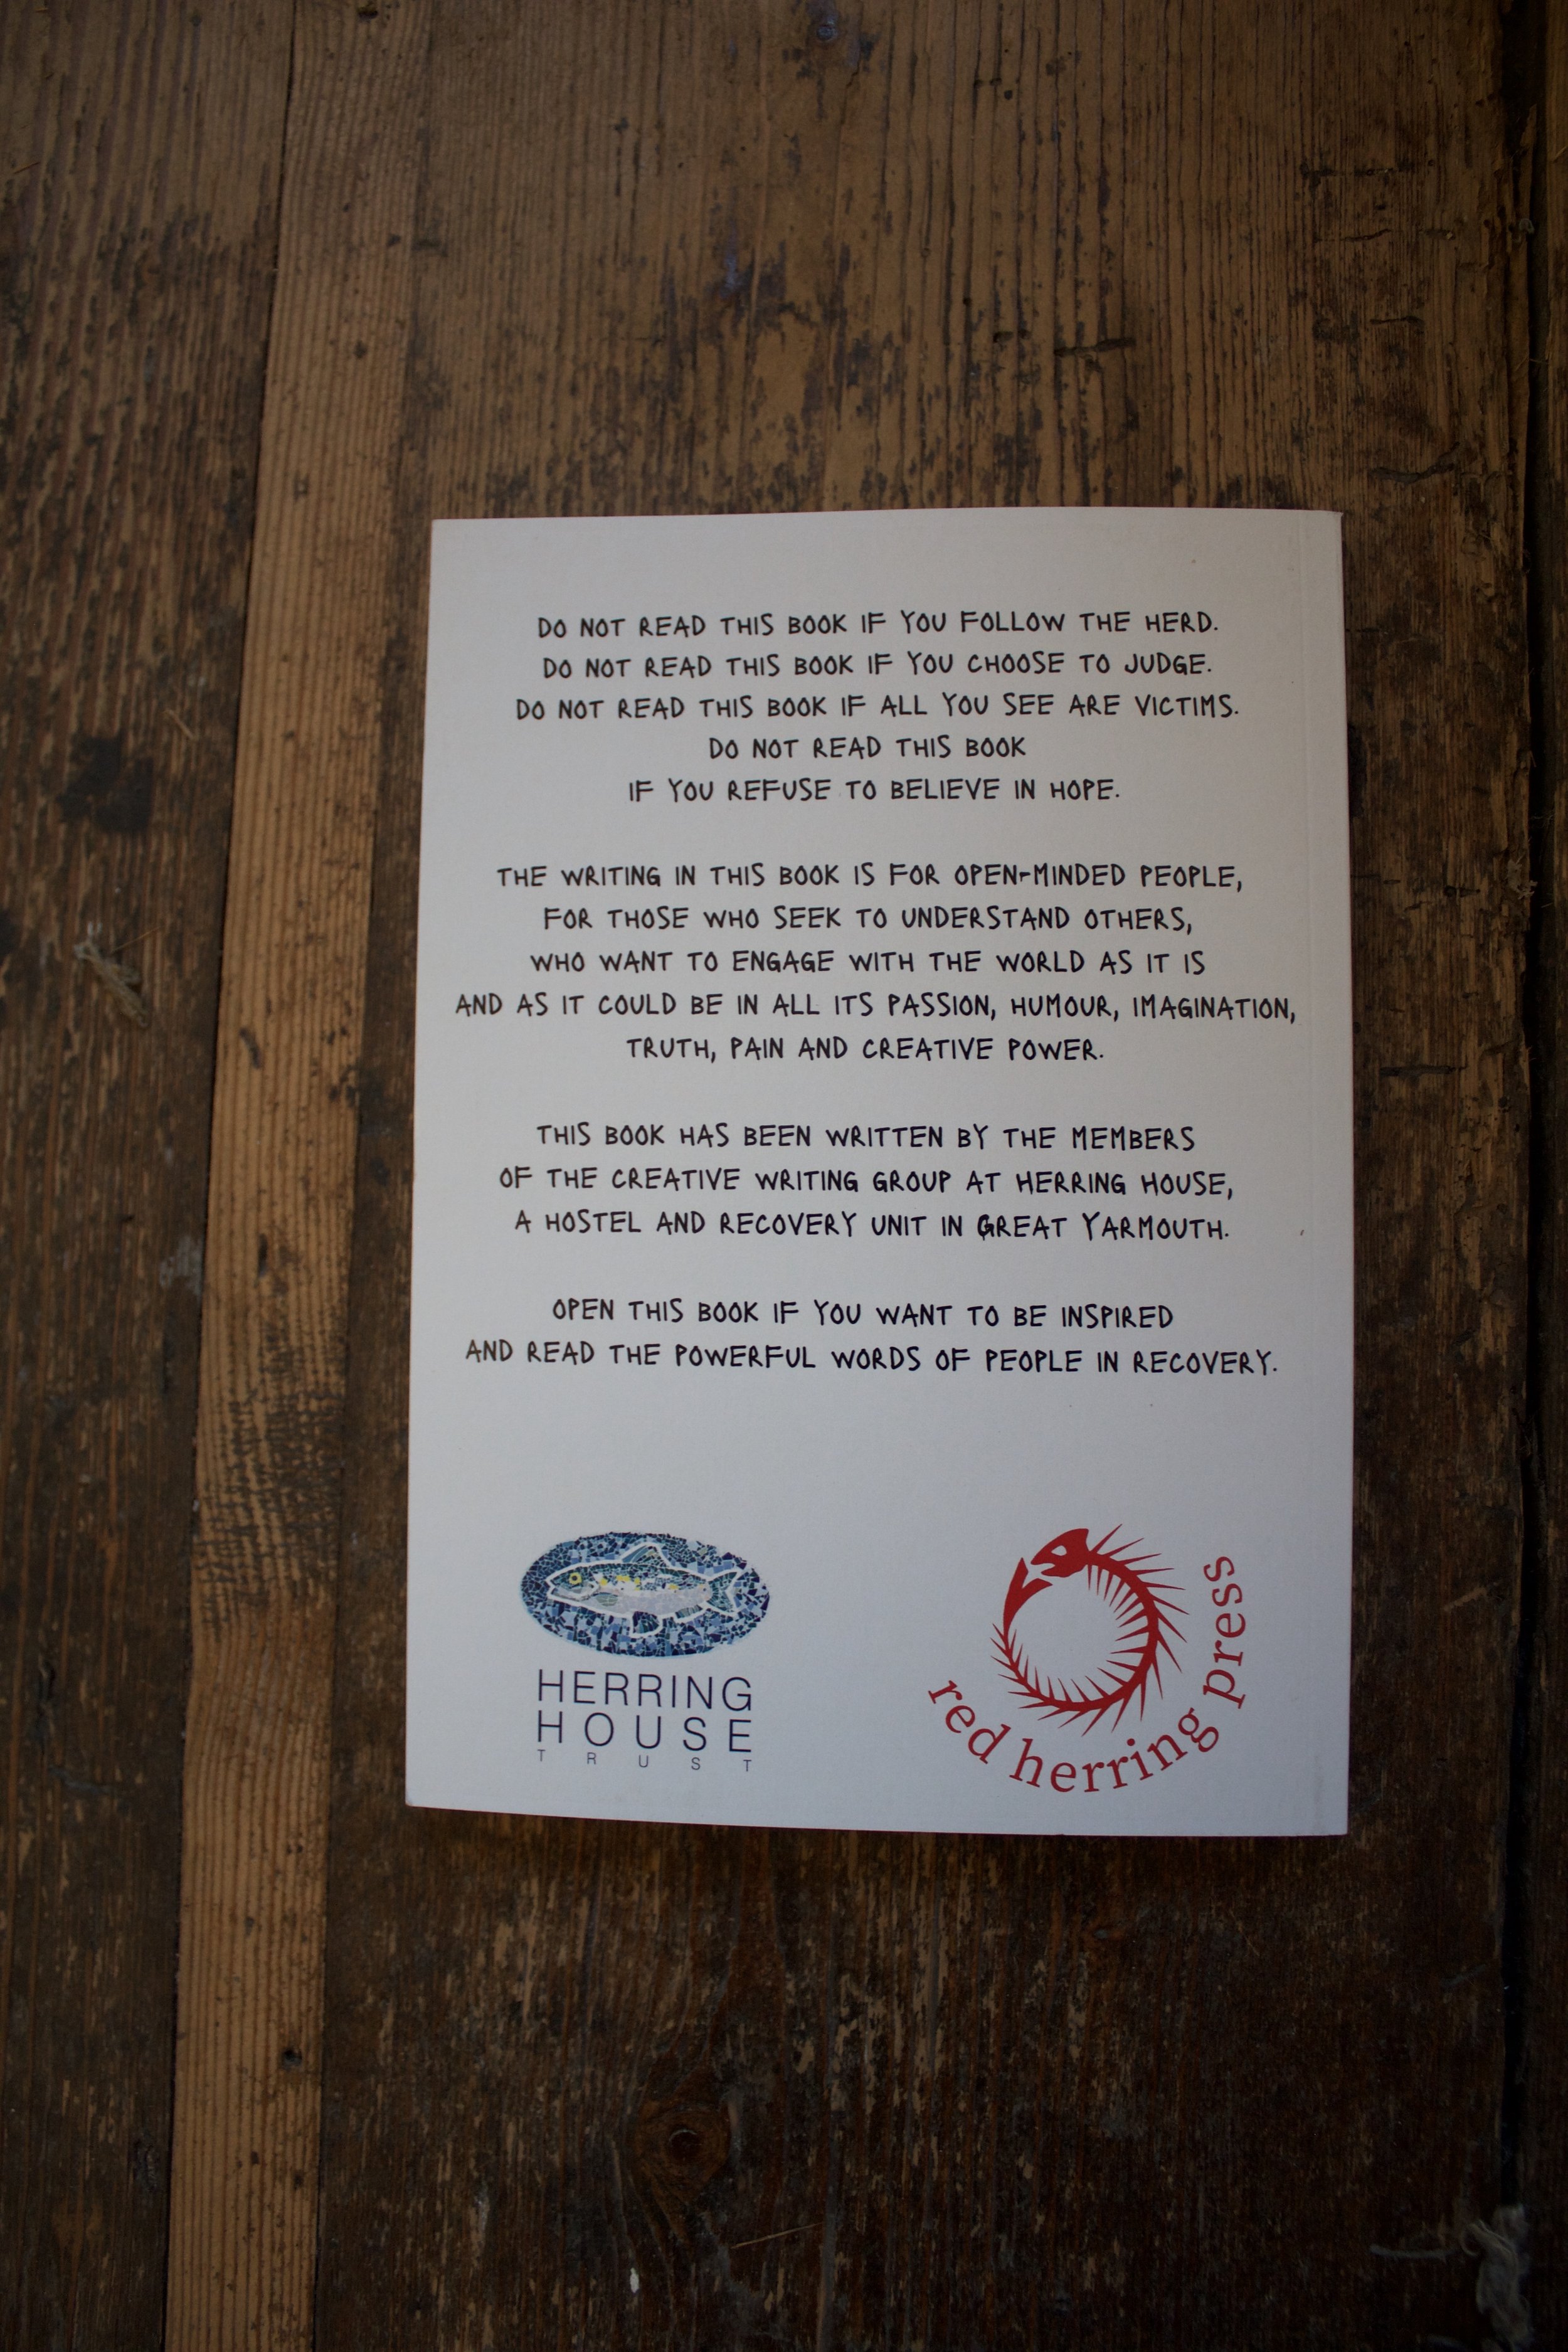 DO NOT READ THIS BOOK IF YOU FOLLOW THE HERD.
DO NOT READ THIS BOOK IF YOU CHOOSE TO JUDGE.
DO NOT READ THIS BOOK IF ALL YOU SEE ARE VICTIMS.
DO NOT READ THIS BOOK
IF YOU REFUSE TO BELIEVE IN HOPE.
THE WRITING IN THIS BOOK IS FOR OPEN-MINDED PEOPLE,
FOR THOSE WHO SEEK TO UNDERSTAND OTHERS,
WHO WANT TO ENGAGE WITH THE WORLD AS IT IS
AND AS IT COULD BE IN ALL ITS PASSION, HUMOUR, IMAGINATION,
TRUTH, PAIN AND CREATIVE POWER.
THIS BOOK HAS BEEN WRITTEN BY THE MEMBERS
OF THE CREATIVE WRITING GROUP AT HERRING HOUSE,
A HOSTEL AND RECOVERY UNIT IN GREAT YARMOUTH.
OPEN THIS BOOK IF YOU WANT TO BE INSPIRED
AND READ THE POWERFUL WORDS OF PEOPLE IN RECOVERY.
HERRING
HOUSE
TRUST
red herring press